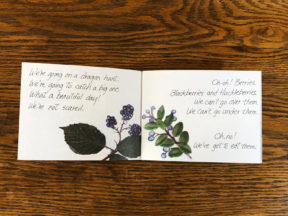 We're going on a dragon hunt.
We're going to catch a big one.
What a beautiful day!
We're not scared.
Oh-oh! Berries.
Blackberries and Huckleberries.
We can't go over them.
We can't go under them.
Oh, no!
We've got to eat them.